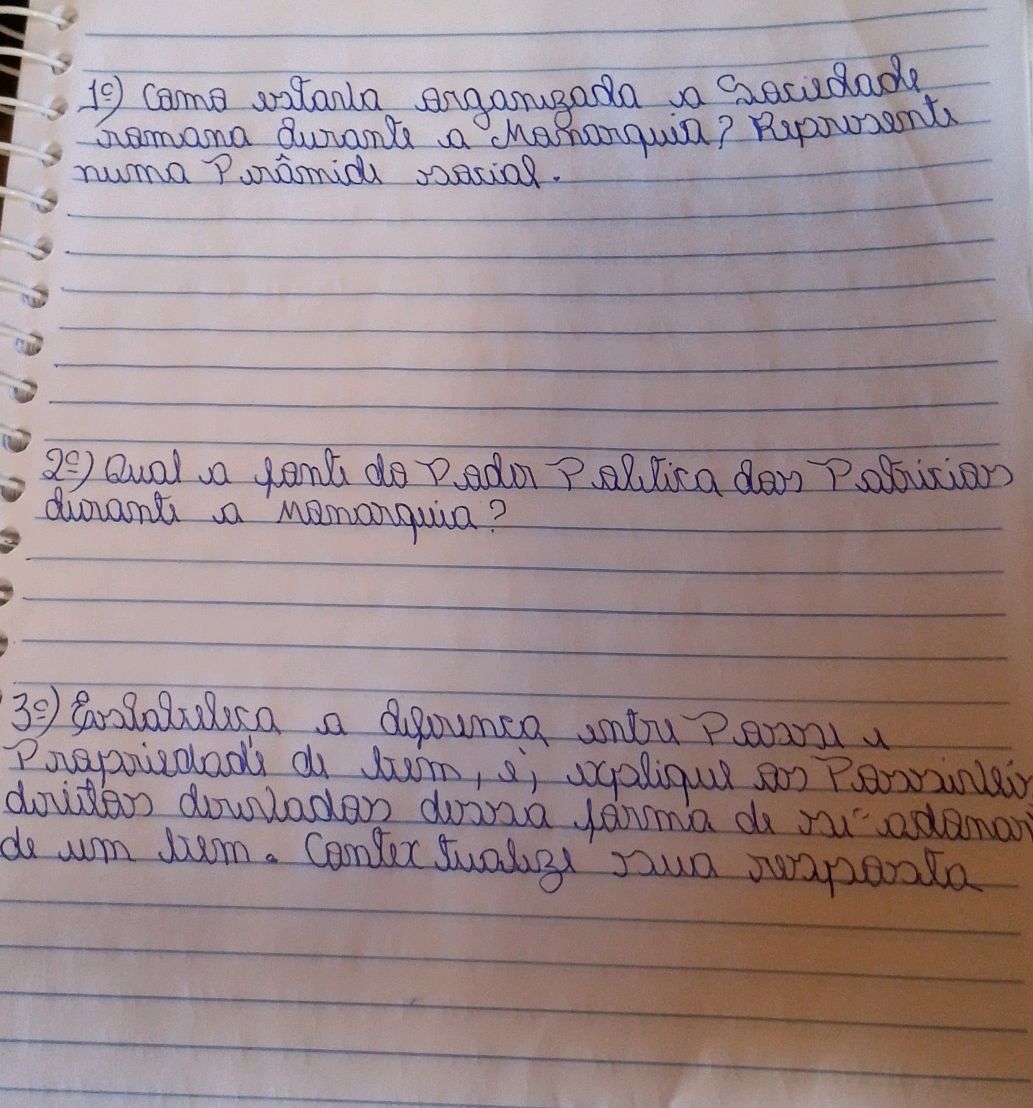 1º) Como estava organizada a Sociedade
romana durante a Monarquia? Represente
numa Pirâmide social.
2º) Qual a fonte do Poder Político dos Patrícios
durante a monarquia?
3º) Estabeleça a diferença entre Posse e
Propriedade de bem, e, explique os Possíveis
direitos derivados dessa forma de se
de um bem. Contextualize sua resposta